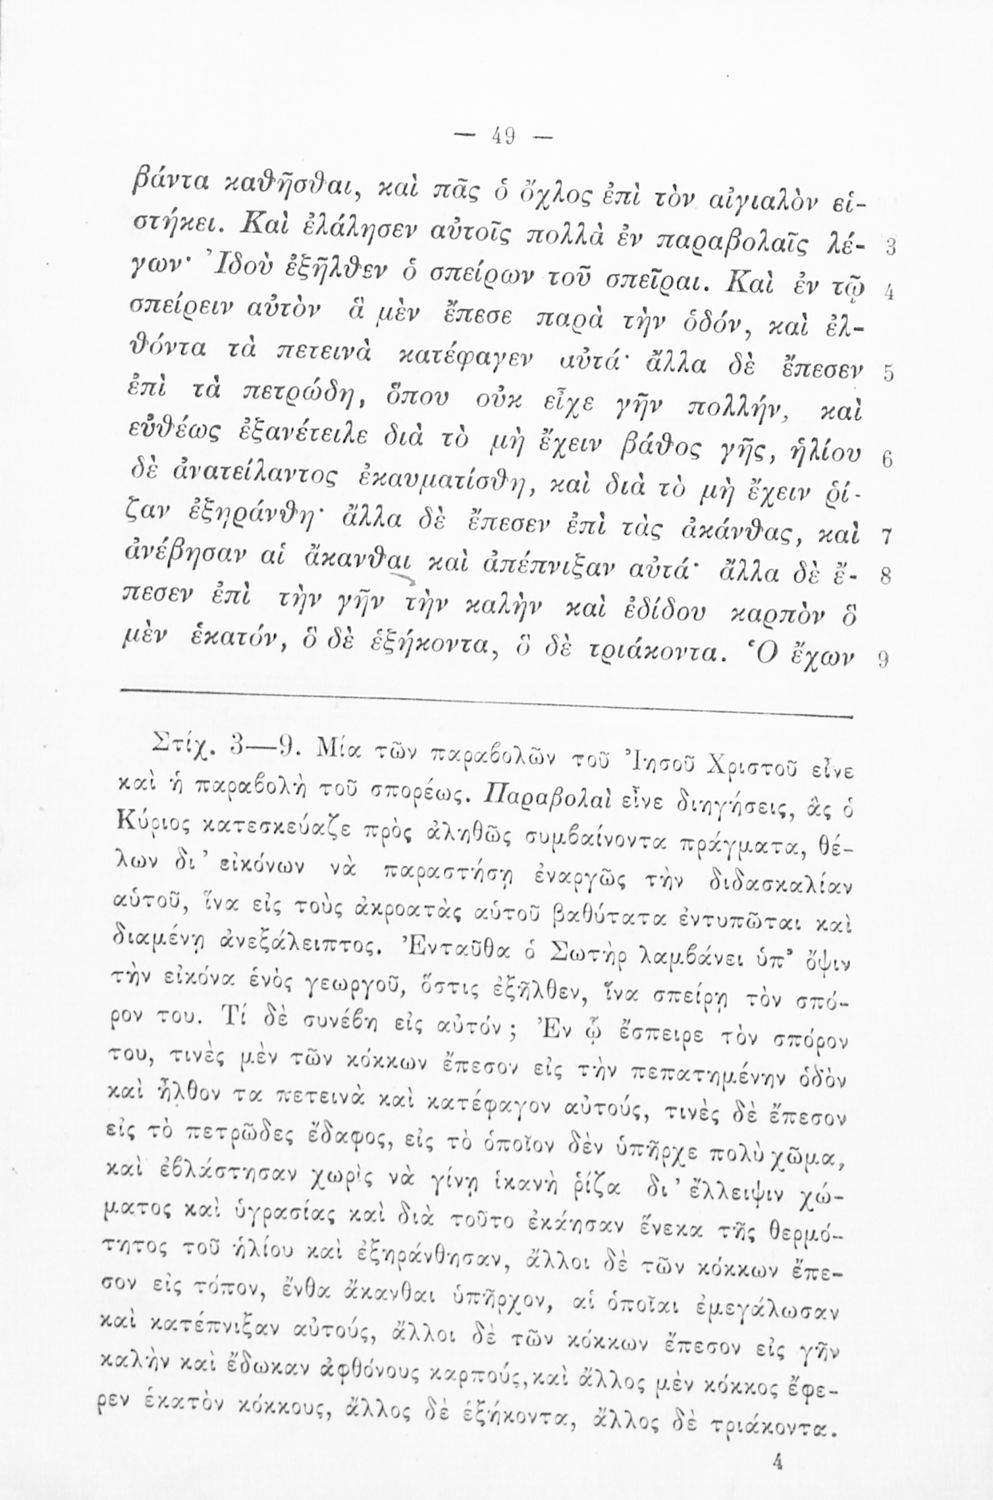 — 49 —
βάντα καθῆσθαι, καὶ πᾶς ὁ ὄχλος ἐπὶ τὸν αἰγιαλὸν εἱ-
στήκει. Καὶ ἐλάλησεν αὐτοῖς πολλὰ ἐν παραβολαῖς λέ- 3
γων· Ἰδοὺ ἐξῆλθεν ὁ σπείρων τοῦ σπεῖραι. Καὶ ἐν τῷ 4
σπείρειν αὐτὸν ἃ μὲν ἔπεσε παρὰ τὴν ὁδόν, καὶ ἐλ-
θόντα τὰ πετεινὰ κατέφαγεν αὐτά· ἄλλα δὲ ἔπεσεν 5
ἐπὶ τὰ πετρώδη, ὅπου οὐκ εἶχε γῆν πολλήν, καὶ
εὐθέως ἐξανέτειλε διὰ τὸ μὴ ἔχειν βάθος γῆς, ἡλίου 6
δὲ ἀνατείλαντος ἐκαυματίσθη, καὶ διὰ τὸ μὴ ἔχειν ῥί-
ζαν ἐξηράνθη· ἄλλα δὲ ἔπεσεν ἐπὶ τὰς ἀκάνθας, καὶ 7
ἀνέβησαν αἱ ἄκανθαι καὶ ἀπέπνιξαν αὐτά· ἄλλα δὲ ἔ- 8
πεσεν ἐπὶ τὴν γῆν τὴν καλὴν καὶ ἐδίδου καρπὸν ὃ
μὲν ἑκατόν, ὃ δὲ ἑξήκοντα, ὃ δὲ τριάκοντα. Ὁ ἔχων 9
Στίχ. 3—9. Μία τῶν παραβολῶν τοῦ Ἰησοῦ Χριστοῦ εἶνε
καὶ ἡ παραβολὴ τοῦ σπορέως. Παραβολαὶ εἶνε διηγήσεις, ἃς ὁ
Κύριος κατεσκεύαζε πρὸς ἀληθῶς συμβαίνοντα πράγματα, θέ-
λων δι' εἰκόνων νὰ παραστήσῃ ἐναργῶς τὴν διδασκαλίαν
αὑτοῦ, ἵνα εἰς τοὺς ἀκροατὰς αὑτοῦ βαθύτατα ἐντυπῶται καὶ
διαμένῃ ἀνεξάλειπτος. Ἐνταῦθα ὁ Σωτὴρ λαμβάνει ὑπ' ὄψιν
τὴν εἰκόνα ἑνὸς γεωργοῦ, ὅστις ἐξῆλθεν, ἵνα σπείρῃ τὸν σπό-
ρον του. Τί δὲ συνέβη εἰς αὐτόν; Ἐν ᾧ ἔσπειρε τὸν σπόρον
του, τινὲς μὲν τῶν κόκκων ἔπεσον εἰς τὴν πεπατημένην ὁδὸν
καὶ ἦλθον τα πετεινὰ καὶ κατέφαγον αὐτούς, τινὲς δὲ ἔπεσον
εἰς τὸ πετρῶδες ἔδαφος, εἰς τὸ ὁποῖον δὲν ὑπῆρχε πολὺ χῶμα,
καὶ ἐβλάστησαν χωρὶς νὰ γίνῃ ἱκανὴ ῥίζα δι' ἔλλειψιν χώ-
ματος καὶ ὑγρασίας καὶ διὰ τοῦτο ἐκάησαν ἕνεκα τῆς θερμό-
τητος τοῦ ἡλίου καὶ ἐξηράνθησαν, ἄλλοι δὲ τῶν κόκκων ἔπε-
σον εἰς τόπον, ἔνθα ἄκανθαι ὑπῆρχον, αἱ ὁποῖαι ἐμεγάλωσαν
καὶ κατέπνιξαν αὐτούς, ἄλλοι δὲ τῶν κόκκων ἔπεσον εἰς γῆν
καλὴν καὶ ἔδωκαν ἀφθόνους καρπούς, καὶ ἄλλος μὲν κόκκος ἔφε-
ρεν ἑκατὸν κόκκους, ἄλλος δὲ ἑξήκοντα, ἄλλος δὲ τριάκοντα.
4